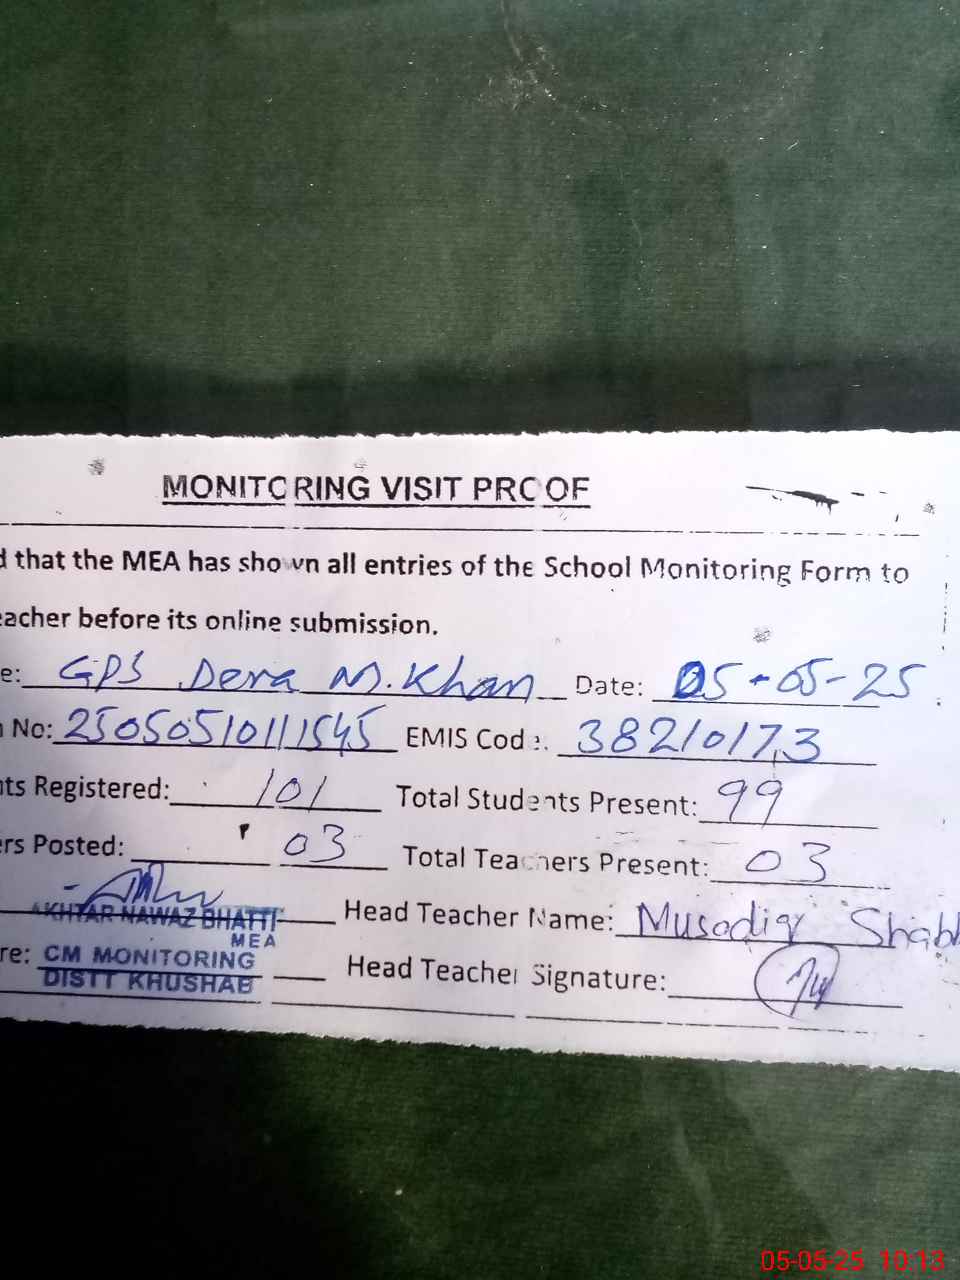 MONITORING VISIT PROOF
d that the MEA has shown all entries of the School Monitoring Form to
eacher before its online submission.
e: GPS Dera M. Khan Date: 05-05-25
No: 25050510111545 EMIS Code: 38210173
nts Registered: 101 Total Students Present: 99
ers Posted: 03 Total Teachers Present: 03
AKHTAR NAWAZ BHATTI Head Teacher Name: Musadiq Shabb
MEA
re: CM MONITORING Head Teacher Signature:
DISTT KHUSHAB
05-05-25 10:13